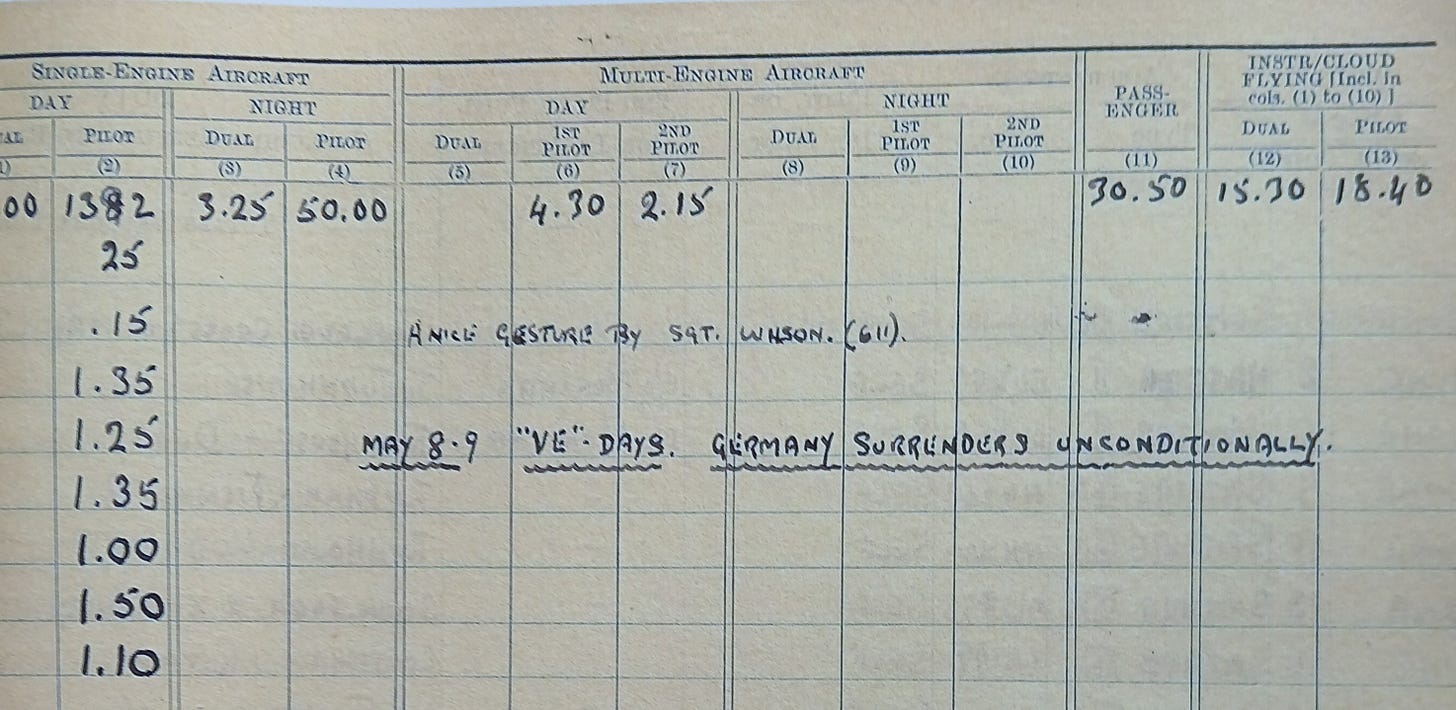 SINGLE-ENGINE AIRCRAFT MULTI-ENGINE AIRCRAFT PASS-ENGER INSTR/CLOUD FLYING [Incl. in cols. (1) to (10) ]
DAY NIGHT DAY NIGHT
PILOT DUAL PILOT DUAL 1ST PILOT 2ND PILOT DUAL 1ST PILOT 2ND PILOT DUAL PILOT
(2) (3) (4) (5) (6) (7) (8) (9) (10) (11) (12) (13)
00 1382 3.25 50.00 4.30 2.15 30.50 15.30 18.40
25
.15 A NICE GESTURE BY SGT. (611).
1.35
1.25 MAY 8.9 "VE"-DAYS. GERMANY SURRENDERS UNCONDITIONALLY.
1.35
1.00
1.50
1.10